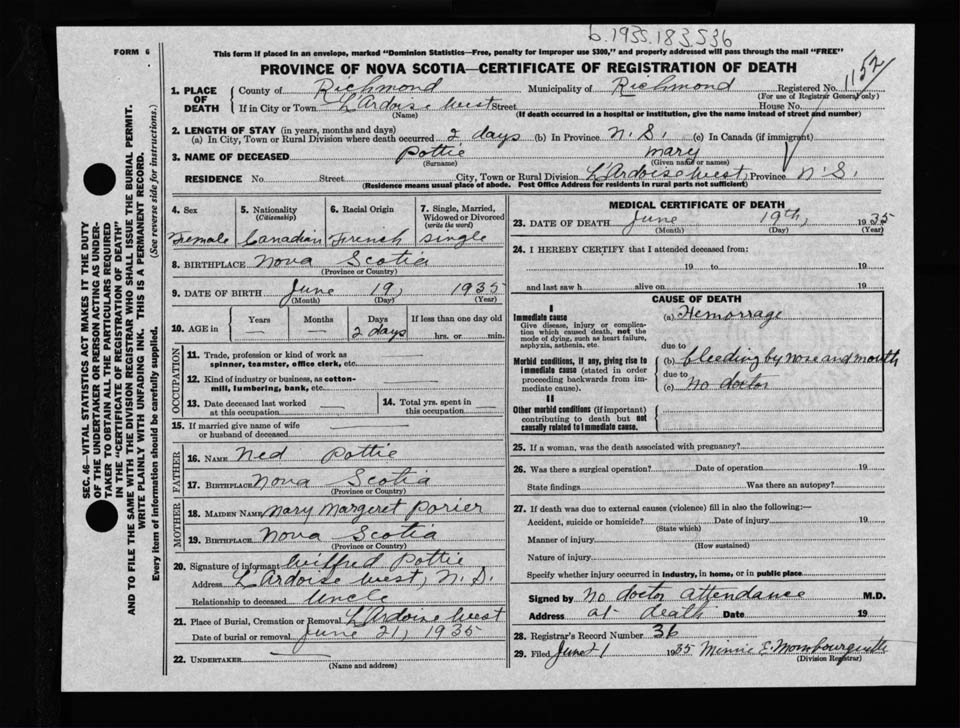 b.1935.183536
FORM 6
This form if placed in an envelope, marked "Dominion Statistics—Free, penalty for improper use $300," and properly addressed will pass through the mail "FREE"
PROVINCE OF NOVA SCOTIA—CERTIFICATE OF REGISTRATION OF DEATH
1152
1. PLACE OF DEATH County of Richmond Municipality of Richmond Registered No.
(For use of Registrar General only)
If in City or Town L'Ardoise West Street House No.
(Name) (If death occurred in a hospital or institution, give the name instead of street and number)
2. LENGTH OF STAY (in years, months and days)
(a) In City, Town or Rural Division where death occurred 2 days (b) In Province N.S. (c) In Canada (if immigrant)
3. NAME OF DECEASED Pottie Mary
(Surname) (Given name or names)
RESIDENCE No. Street City, Town or Rural Division L'Ardoise West, Province N.S.
(Residence means usual place of abode. Post Office Address for residents in rural parts not sufficient)
4. Sex 5. Nationality (Citizenship) 6. Racial Origin 7. Single, Married, Widowed or Divorced (write the word)
Female Canadian French Single
8. BIRTHPLACE Nova Scotia
(Province or Country)
9. DATE OF BIRTH June 19, 1935
(Month) (Day) (Year)
10. AGE in Years Months Days If less than one day old
— — 2 days hrs. or min.
OCCUPATION
11. Trade, profession or kind of work as spinner, teamster, office clerk, etc.
12. Kind of industry or business, as cotton-mill, lumbering, bank, etc.
13. Date deceased last worked at this occupation
14. Total yrs. spent in this occupation
15. If married give name of wife or husband of deceased
FATHER
16. NAME Ned Pottie
17. BIRTHPLACE Nova Scotia
(Province or Country)
MOTHER
18. MAIDEN NAME Mary Margaret Porier
19. BIRTHPLACE Nova Scotia
(Province or Country)
20. Signature of informant Wilfred Pottie
Address L'Ardoise West, N.S.
Relationship to deceased Uncle
21. Place of Burial, Cremation or Removal L'Ardoise West
Date of burial or removal June 21, 1935
22. UNDERTAKER
(Name and address)
MEDICAL CERTIFICATE OF DEATH
23. DATE OF DEATH June 19th, 1935
(Month) (Day) (Year)
24. I HEREBY CERTIFY that I attended deceased from:
19 to 19
and last saw h alive on 19
CAUSE OF DEATH
I
Immediate cause
Give disease, injury or complication which caused death, not the mode of dying, such as heart failure, asphyxia, asthenia, etc.
(a) Hemorrage
due to
Morbid conditions, if any, giving rise to immediate cause (stated in order proceeding backwards from immediate cause).
(b) bleeding by nose and mouth
due to
(c) No doctor
II
Other morbid conditions (if important) contributing to death but not causally related to immediate cause.
25. If a woman, was the death associated with pregnancy?
26. Was there a surgical operation? Date of operation 19
State findings Was there an autopsy?
27. If death was due to external causes (violence) fill in also the following:—
Accident, suicide or homicide? Date of injury 19
(State which)
Manner of injury
(How sustained)
Nature of injury
Specify whether injury occurred in industry, in home, or in public place
Signed by No doctor attendance M.D.
Address at death Date 19
28. Registrar's Record Number 36
29. Filed June 21 1935 Minnie E. Mombourquette
(Division Registrar)
SEC. 46—VITAL STATISTICS ACT MAKES IT THE DUTY
OF THE UNDERTAKER OR PERSON ACTING AS UNDER-
TAKER TO OBTAIN ALL THE PARTICULARS REQUIRED
IN THE "CERTIFICATE OF REGISTRATION OF DEATH"
AND TO FILE THE SAME WITH THE DIVISION REGISTRAR WHO SHALL ISSUE THE BURIAL PERMIT.
WRITE PLAINLY WITH UNFADING INK. THIS IS A PERMANENT RECORD.
Every item of information should be carefully supplied. (See reverse side for instructions.)